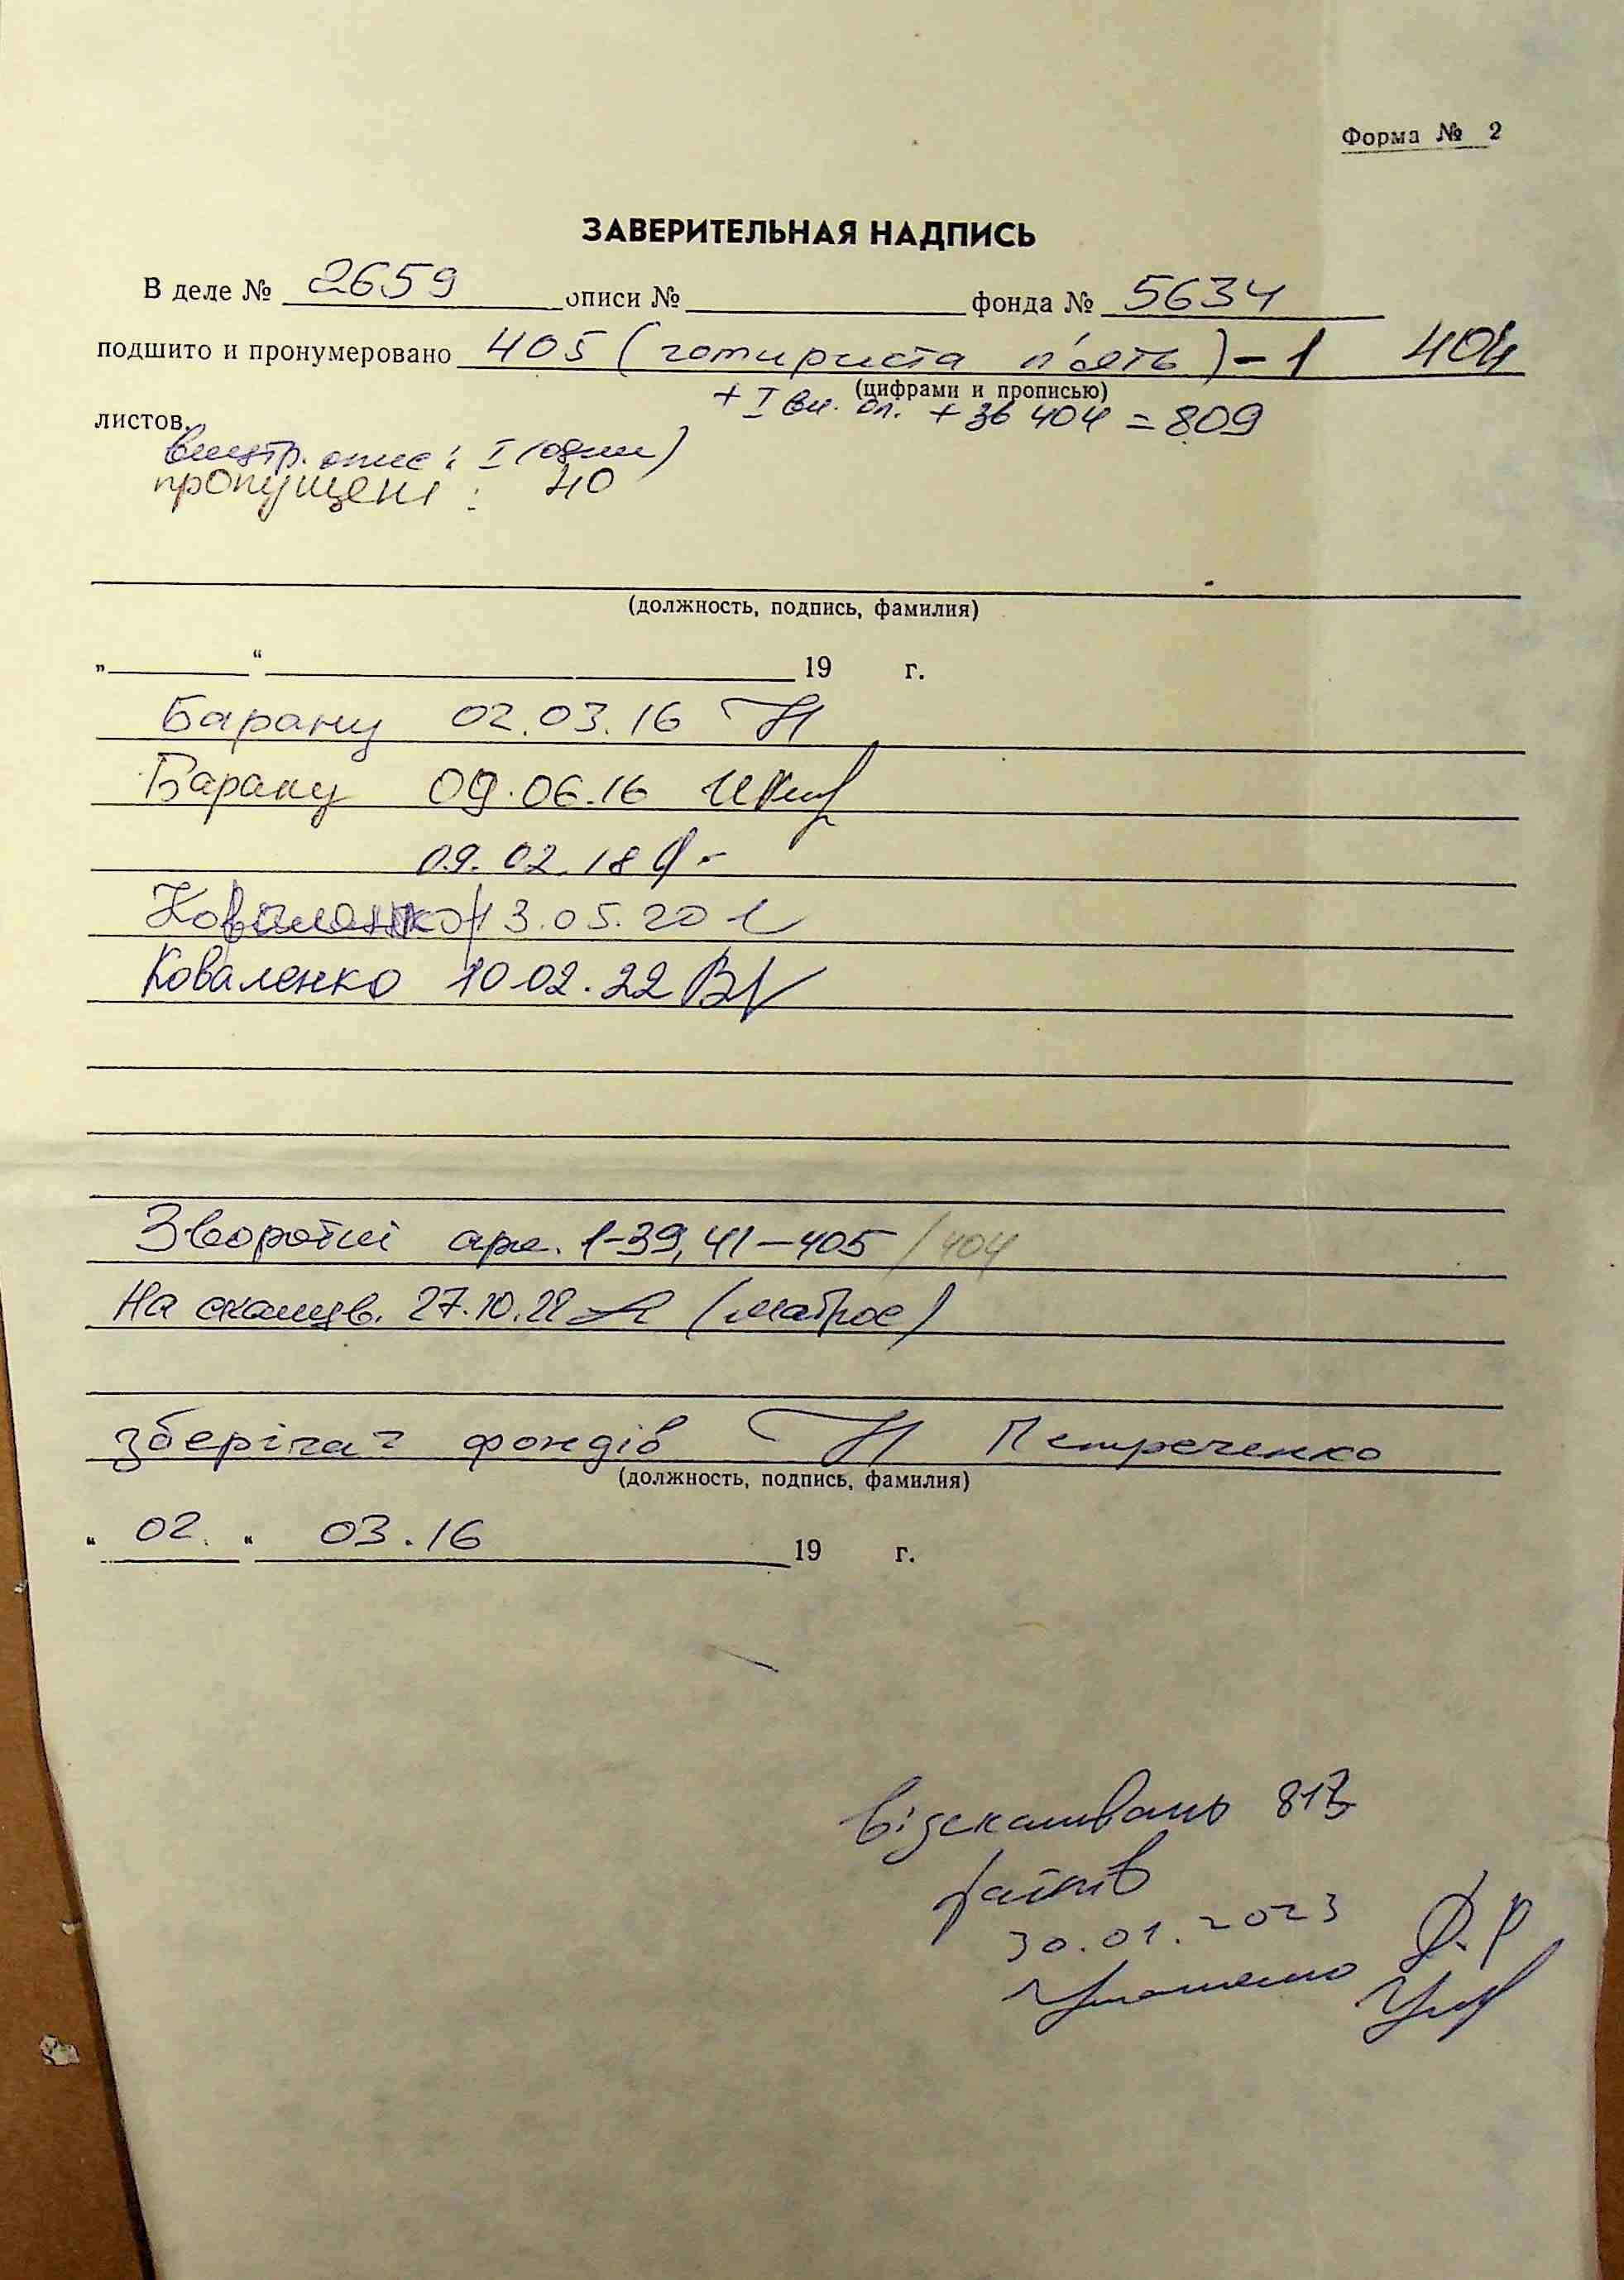 Форма № 2
ЗАВЕРИТЕЛЬНАЯ НАДПИСЬ
В деле № 2659 описи № фонда № 5634
подшито и пронумеровано 405 (чотириста п'ять) - 1 404
(цифрами и прописью)
+ I вн. оп. + зв 404 = 809
листов.
внутр. опис: I (один)
пропущені: 40
(должность, подпись, фамилия)
„ “ 19 г.
Барану 02.03.16
Барану 09.06.16
09.02.18
Коваленко 13.05.20
Коваленко 10.02.22
Зворотні арк. 1-39, 41-405 / 404
На сканув. 27.10.22 (Матрос)
зберігач фондів Петреченко
(должность, подпись, фамилия)
„ 02. “ 03.16 19 г.
відскановано 813
файлів
30.01.2023